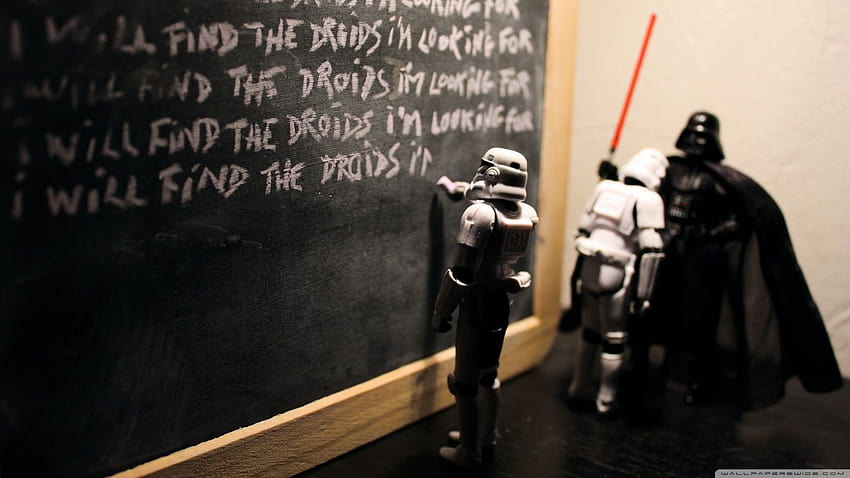 LOOKING FOR
I WILL FIND THE DROIDS i'M LOOKING FOR
I WILL FIND THE DROiDS i'M LOOKING FOR
i WiLL FiND THE DROIDS i'M LOOKING FOR
i WiLL FiND THE DROIDS i'
WALLPAPERSWIDE.COM